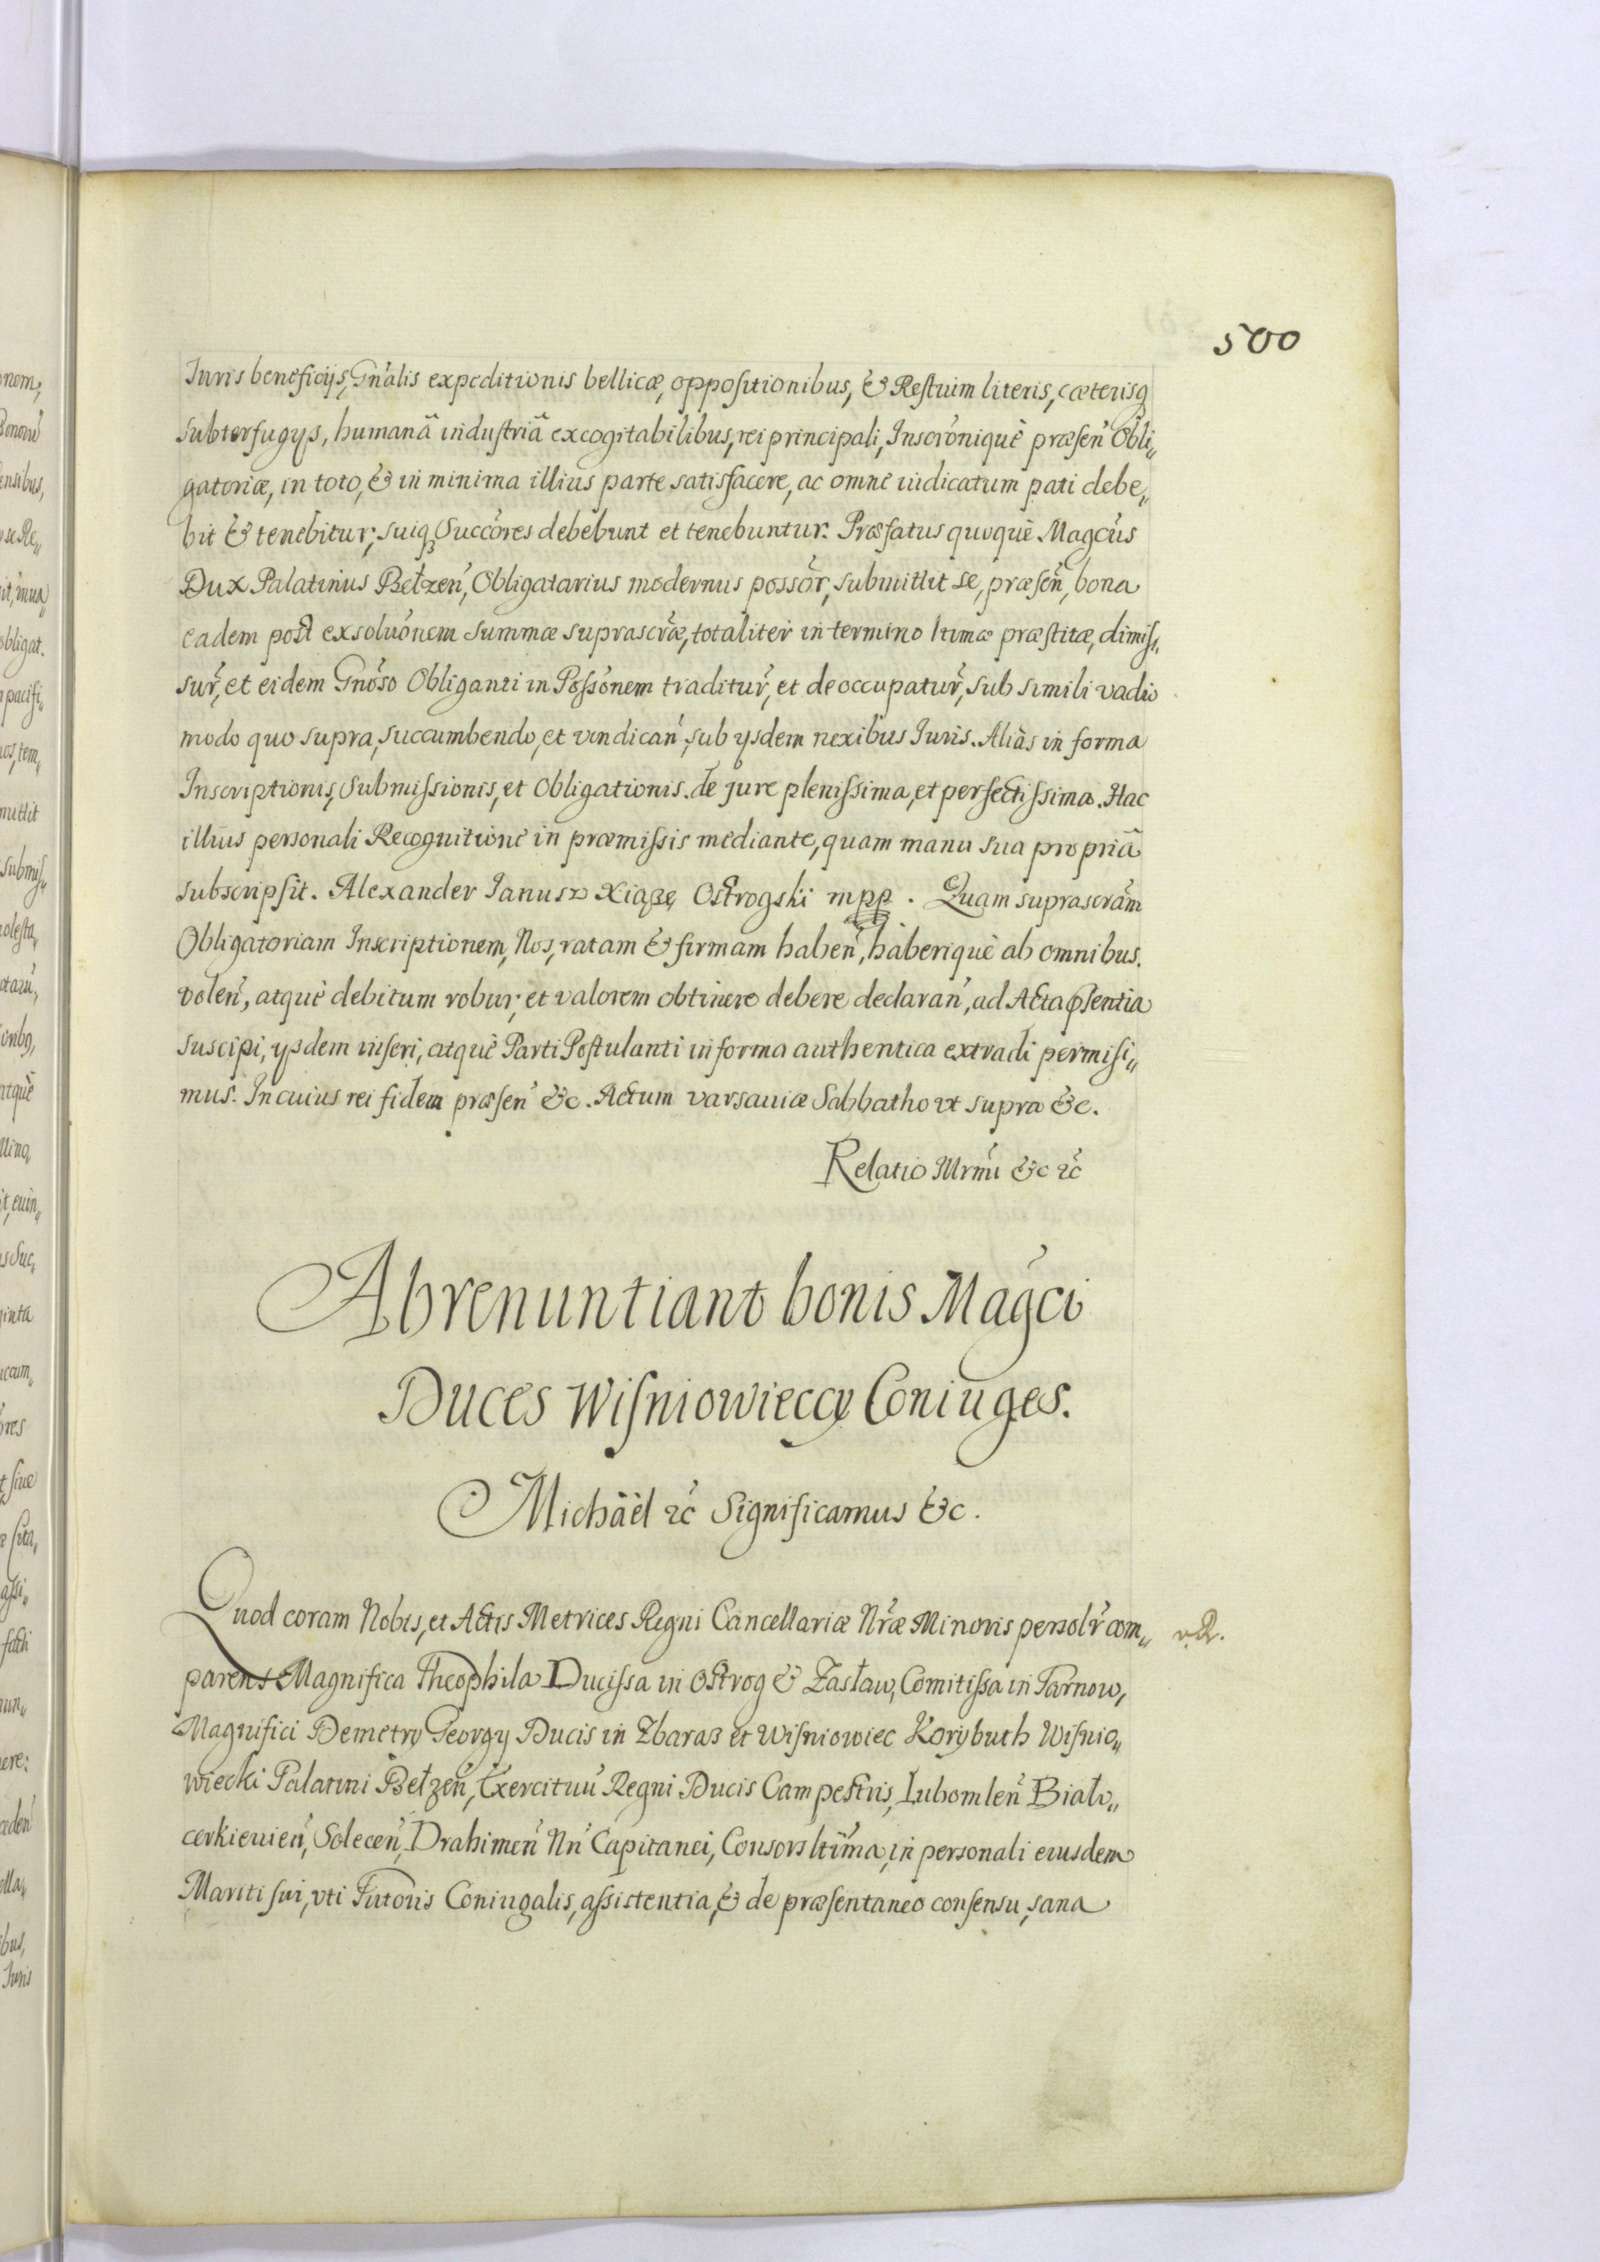 500
Iuris beneficijs, Gn̄alis expeditionis bellicæ, oppositionibus, & Restuim literis, cæterisq̃
subterfugijs, humanâ industriâ excogitabilibus, rei principali, Inscrõniquè præsen̄ Obli„
gatoriæ, in toto, & in minima illius parte satisfacere, ac omne iudicatum pati debe„
bit & tenebitur; suiqȝ Succõres debebunt et tenebuntur. Præfatus quoquè Magcũs
Dux Palatinus Bełzen̄, Obligatarius modernus possõr, submittit se, præsen̄, bona
eadem post exsoluõnem summæ suprascrãæ, totaliter in termino ltimæ præstitæ, dimiss„
sur̃, et eidem Gnõso Obliganti in Possõnem traditur̃, et deoccupatur̃, sub simili vadio
modo quo supra, succumbendo, et vendican̄, sub ijsdem nexibus Iuris. Aliàs in forma
Inscriptionis, Submissionis, et Obligationis de jure plenissima, et perfectissima. Hac
illius personali Recognitione in præmissis mediante, quam manu sua propriâ
subscripsit. Alexander Ianusz Xiąże Ostrogski mpp. Quam suprascrãm
Obligatoriam Inscriptionem, Nos, ratam & firmam haben̄, haberiquè ab omnibus
volen̄, atquè debitum robur, et valorem obtinere debere declaran̄, ad Acta p̃sentia
suscipi, ijsdem inseri, atquè Parti Postulanti in forma authentica extradi permisi„
mus. In cuius rei fidem præsen̄ &c. Actum varsauiæ Sabbatho vt supra &c.
Relatio Mrmĩ &c ꝛc̃
Abrenuntiant bonis Magc̃i
Duces Wisniowieccy Coniuges.
Michäèl ꝛc̃ Significamus &c.
Quod coram Nobis, et Actis Metrices Regni Cancellariæ Nr̃æ Minoris persolr̃ com„
parens Magnifica Theophila Ducissa in Ostrog & Zasław, Comitissa in Tarnow,
Magnifici Demetrij Georgij Ducis in Zbaraż et Wisniowiec Korybuth Wisnio„
wiecki Palatini Bełzen̄, Exercituũ Regni Ducis Campestris, Lubomlen̄ Biało„
cerkieuien̄, Solecen̄, Drahimen̄ Nn̄ Capitanei, Consors ltĩma, in personali eiusdem
Mariti sui, vti Tutoris Coniugalis, assistentia, & de præsentaneo consensu, sana